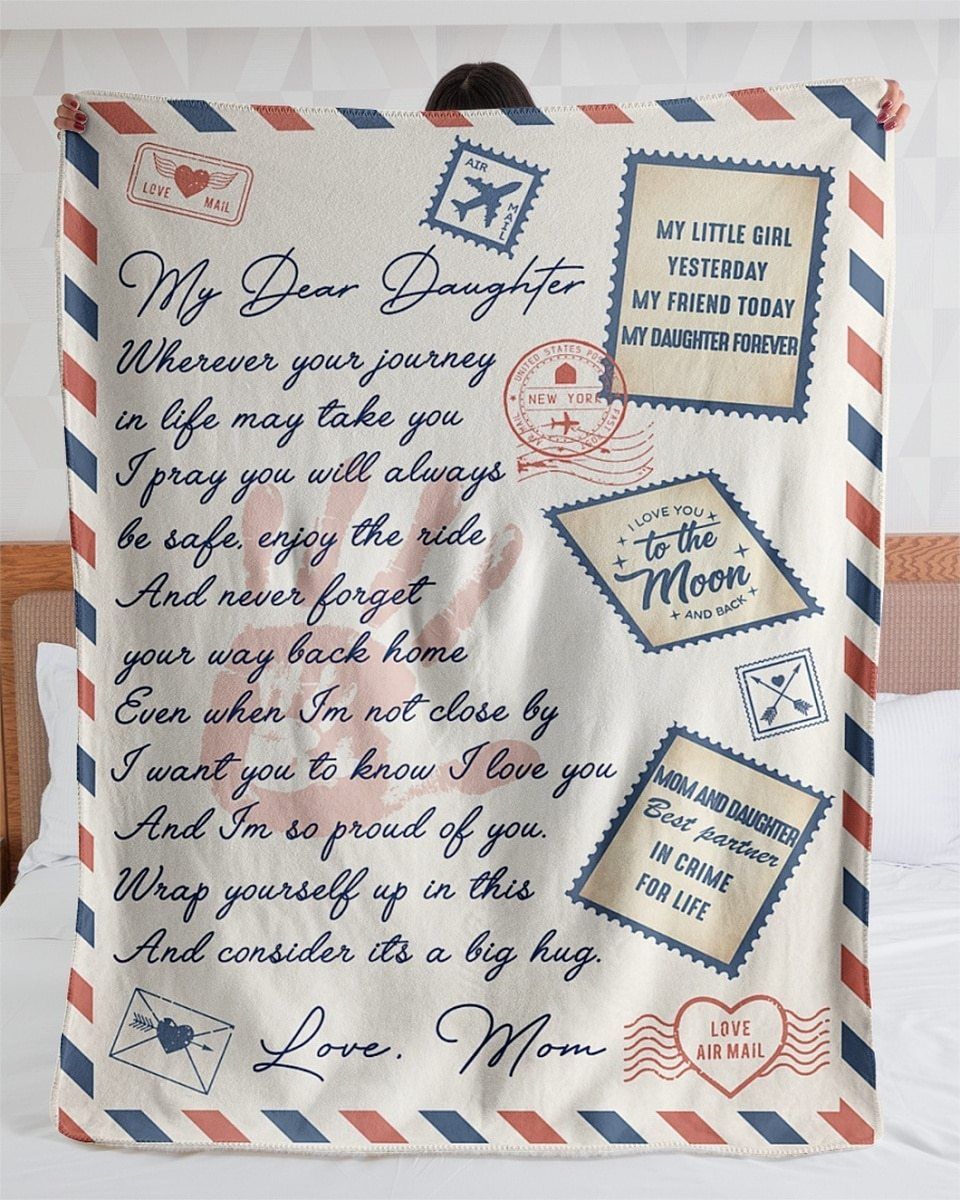 LOVE MAIL
AIR MAIL
MY LITTLE GIRL
YESTERDAY
MY FRIEND TODAY
MY DAUGHTER FOREVER
My Dear Daughter
Wherever your journey
in life may take you
I pray you will always
be safe. enjoy the ride
And never forget
your way back home
Even when Im not close by
I want you to know I love you
And Im so proud of you.
Wrap yourself up in this
And consider its a big hug.
Love. Mom
UNITED STATES
NEW YORK
AIR MAIL
FAST POST
I LOVE YOU
to the
Moon
AND BACK
MOM AND DAUGHTER
Best partner
IN CRIME
FOR LIFE
LOVE
AIR MAIL